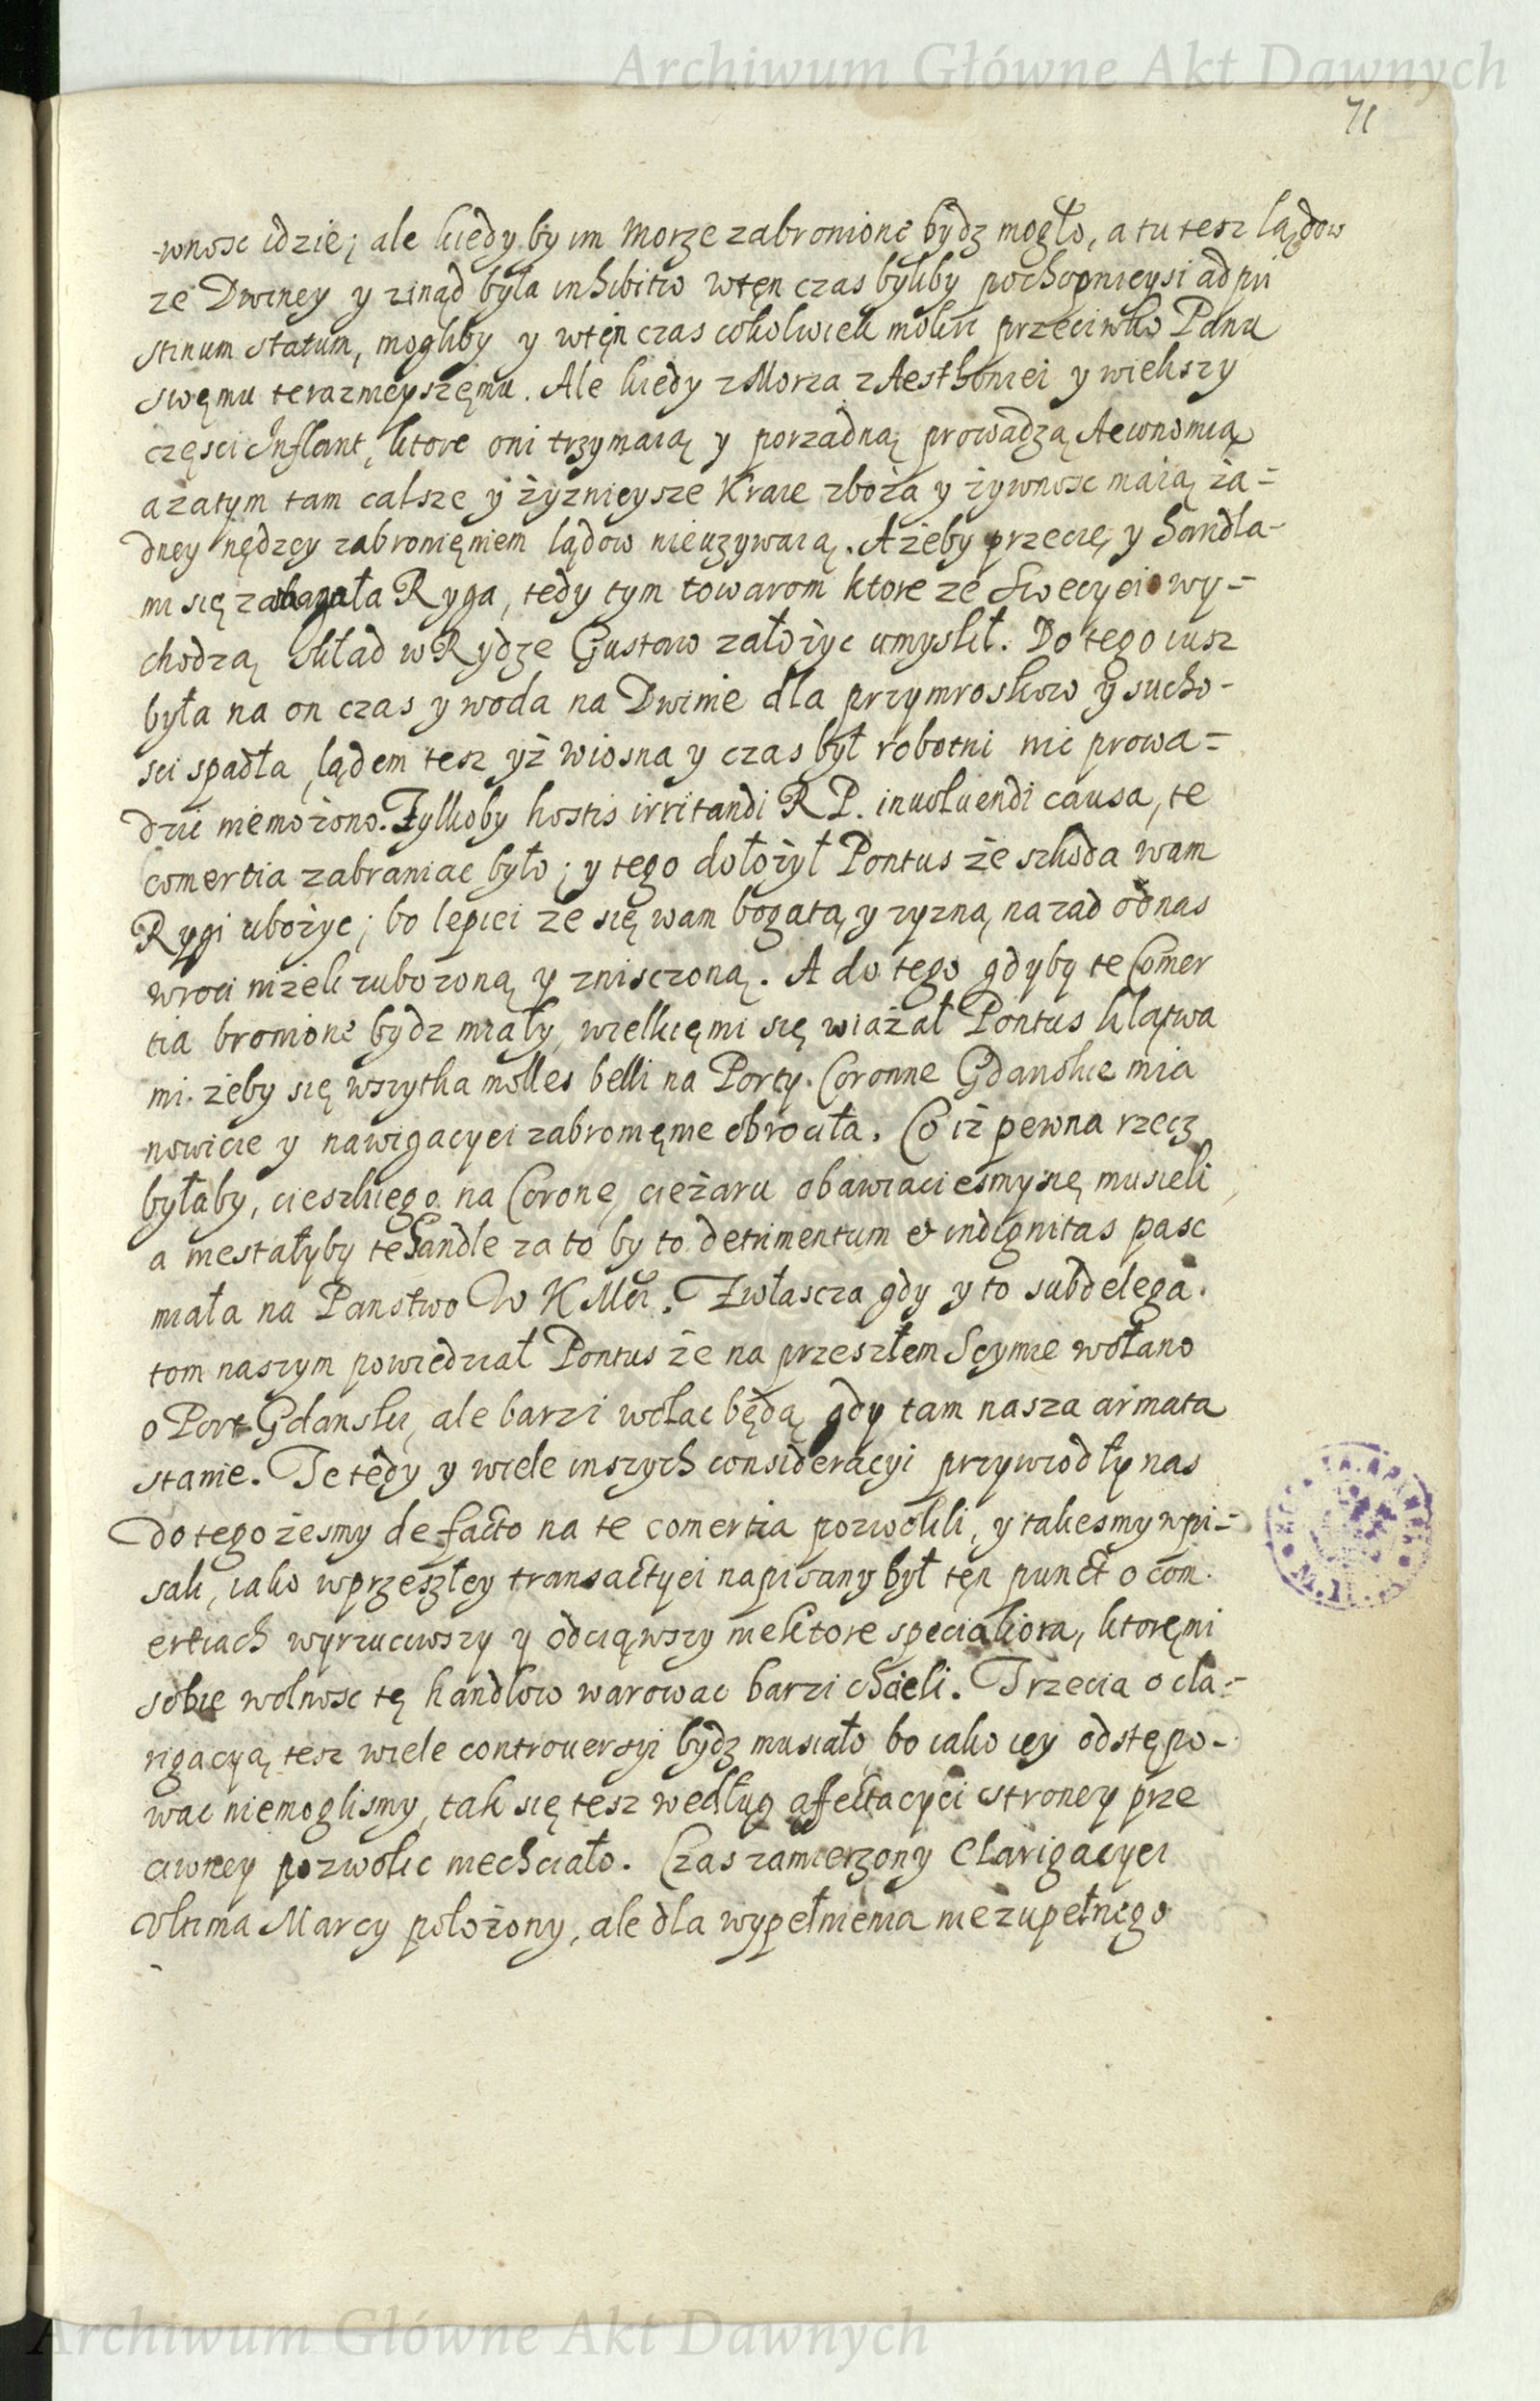 Archiwum Główne Akt Dawnych
71
-wnosc idzie; ale kiedy by im Morze zabronione bydz mogło, a tu tesz lądow
ze Dwiney y zinąd była inhibitio wtęn czas byliby pochopnieysi ad pri
stinum statum, mogliby y wtęn czas cokolwiek moliri przeciwko Panu
swęmu teraznieyszęmu. Ale kiedy z Morza z Aesthoniei y wiekszy
częsci Inflant, ktore oni trzymaią y porzadną prowadzą Aeconomią
azatym tam calsze y żyznieysze Kraie zboża y żywnosc maią ża=
dney nędzey zabronięniem lądow nieuzywaią. Ażeby przecię y handla-
mi się za Ryga, tedy tym towarom ktore ze Swecyei wy=
chodzą skład w Rydze Gustaw założyc umyslił. Do tego iusz
była na on czas y woda na Dwinie dla przymroskow y sucho-
sci spadła, lądem tesz yż wiosna y czas był robotni nic prowa=
dzic niemożono. Tylkoby hostis irritandi R P. inuoluendi causa, te
Comertia zabraniac było; y tego dołożył Pontus że szkoda wam
Rygi ubożyc; bo lepiei ze się wam bogatą y zyzną nazad od nas
wroci nizeli zubozoną y zniszczoną. A do tego gdyby te Comer
tia bronione bydz miały, wielkięmi się wiażał Pontus klątwa
mi. żeby się wszytka molles belli na Porty. Coronne Gdanskie mia
nowicie y nawigacyei zabronięnie obrociła. Co iż pewna rzecz
byłaby, cieszkiego na Coronę cieżaru obawiaciesmysię musieli
a niestałyby te handle za to by to detrimentum & indignitas pasc
miała na Panstwo W K Mci. Zwłascza gdy y to subdelega.
tom naszym powiedział Pontus że na przeszłem Seymie wołano
o Port Gdanski, ale barzi wołac będą gdy tam nasza armata
stanie. Te tedy y wiele inszych consideracyi przywiodły nas
do tego żesmy de facto na te comertia pozwolili, y takesmy wpi=
sali, iako wprzeszłey transactyei napisany był tęn punct o com.
ertiach wyrzuciwszy y odciąwszy niektore specialiora, ktoręmi
sobie wolnosc tę handlow warowac barzi chcieli. Trzecia o cla=
rigacyą tesz wiele controuersyi bydz musiało, bo iako iey odstępo-
wac niemoglismy, tak się tesz według affectacyei strony prze
ciwney pozwolic niechciało. Czas zamierzony Clarigacyei
vltima Marcy położony, ale dla wypełnienia niezupełnego
Archiwum Główne Akt Dawnych